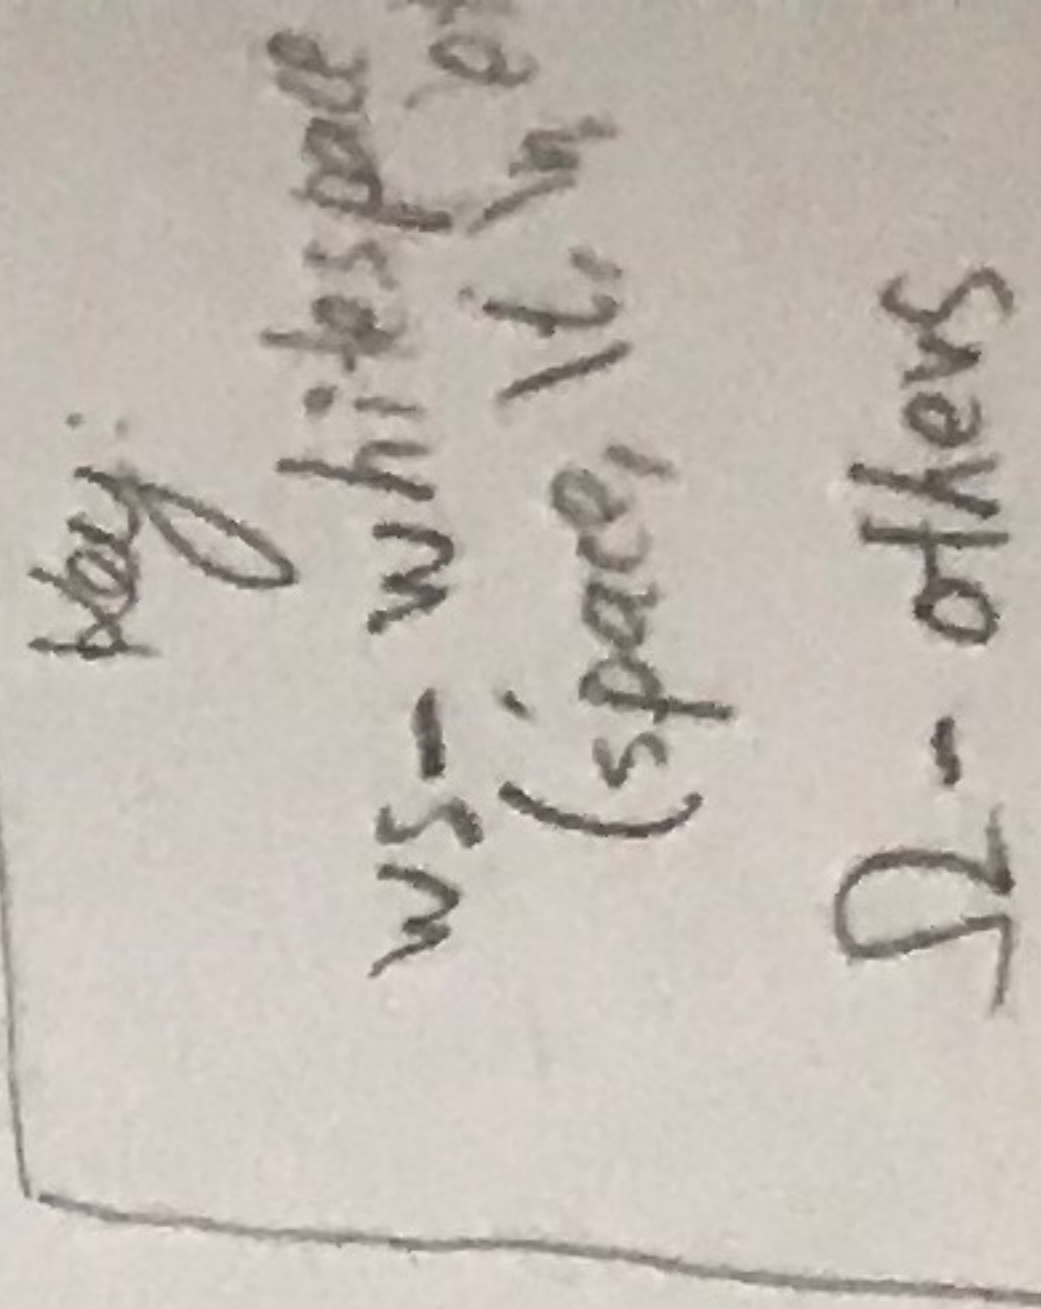 key:
ws - whitespace
(space, \t, \n,
Ω - others